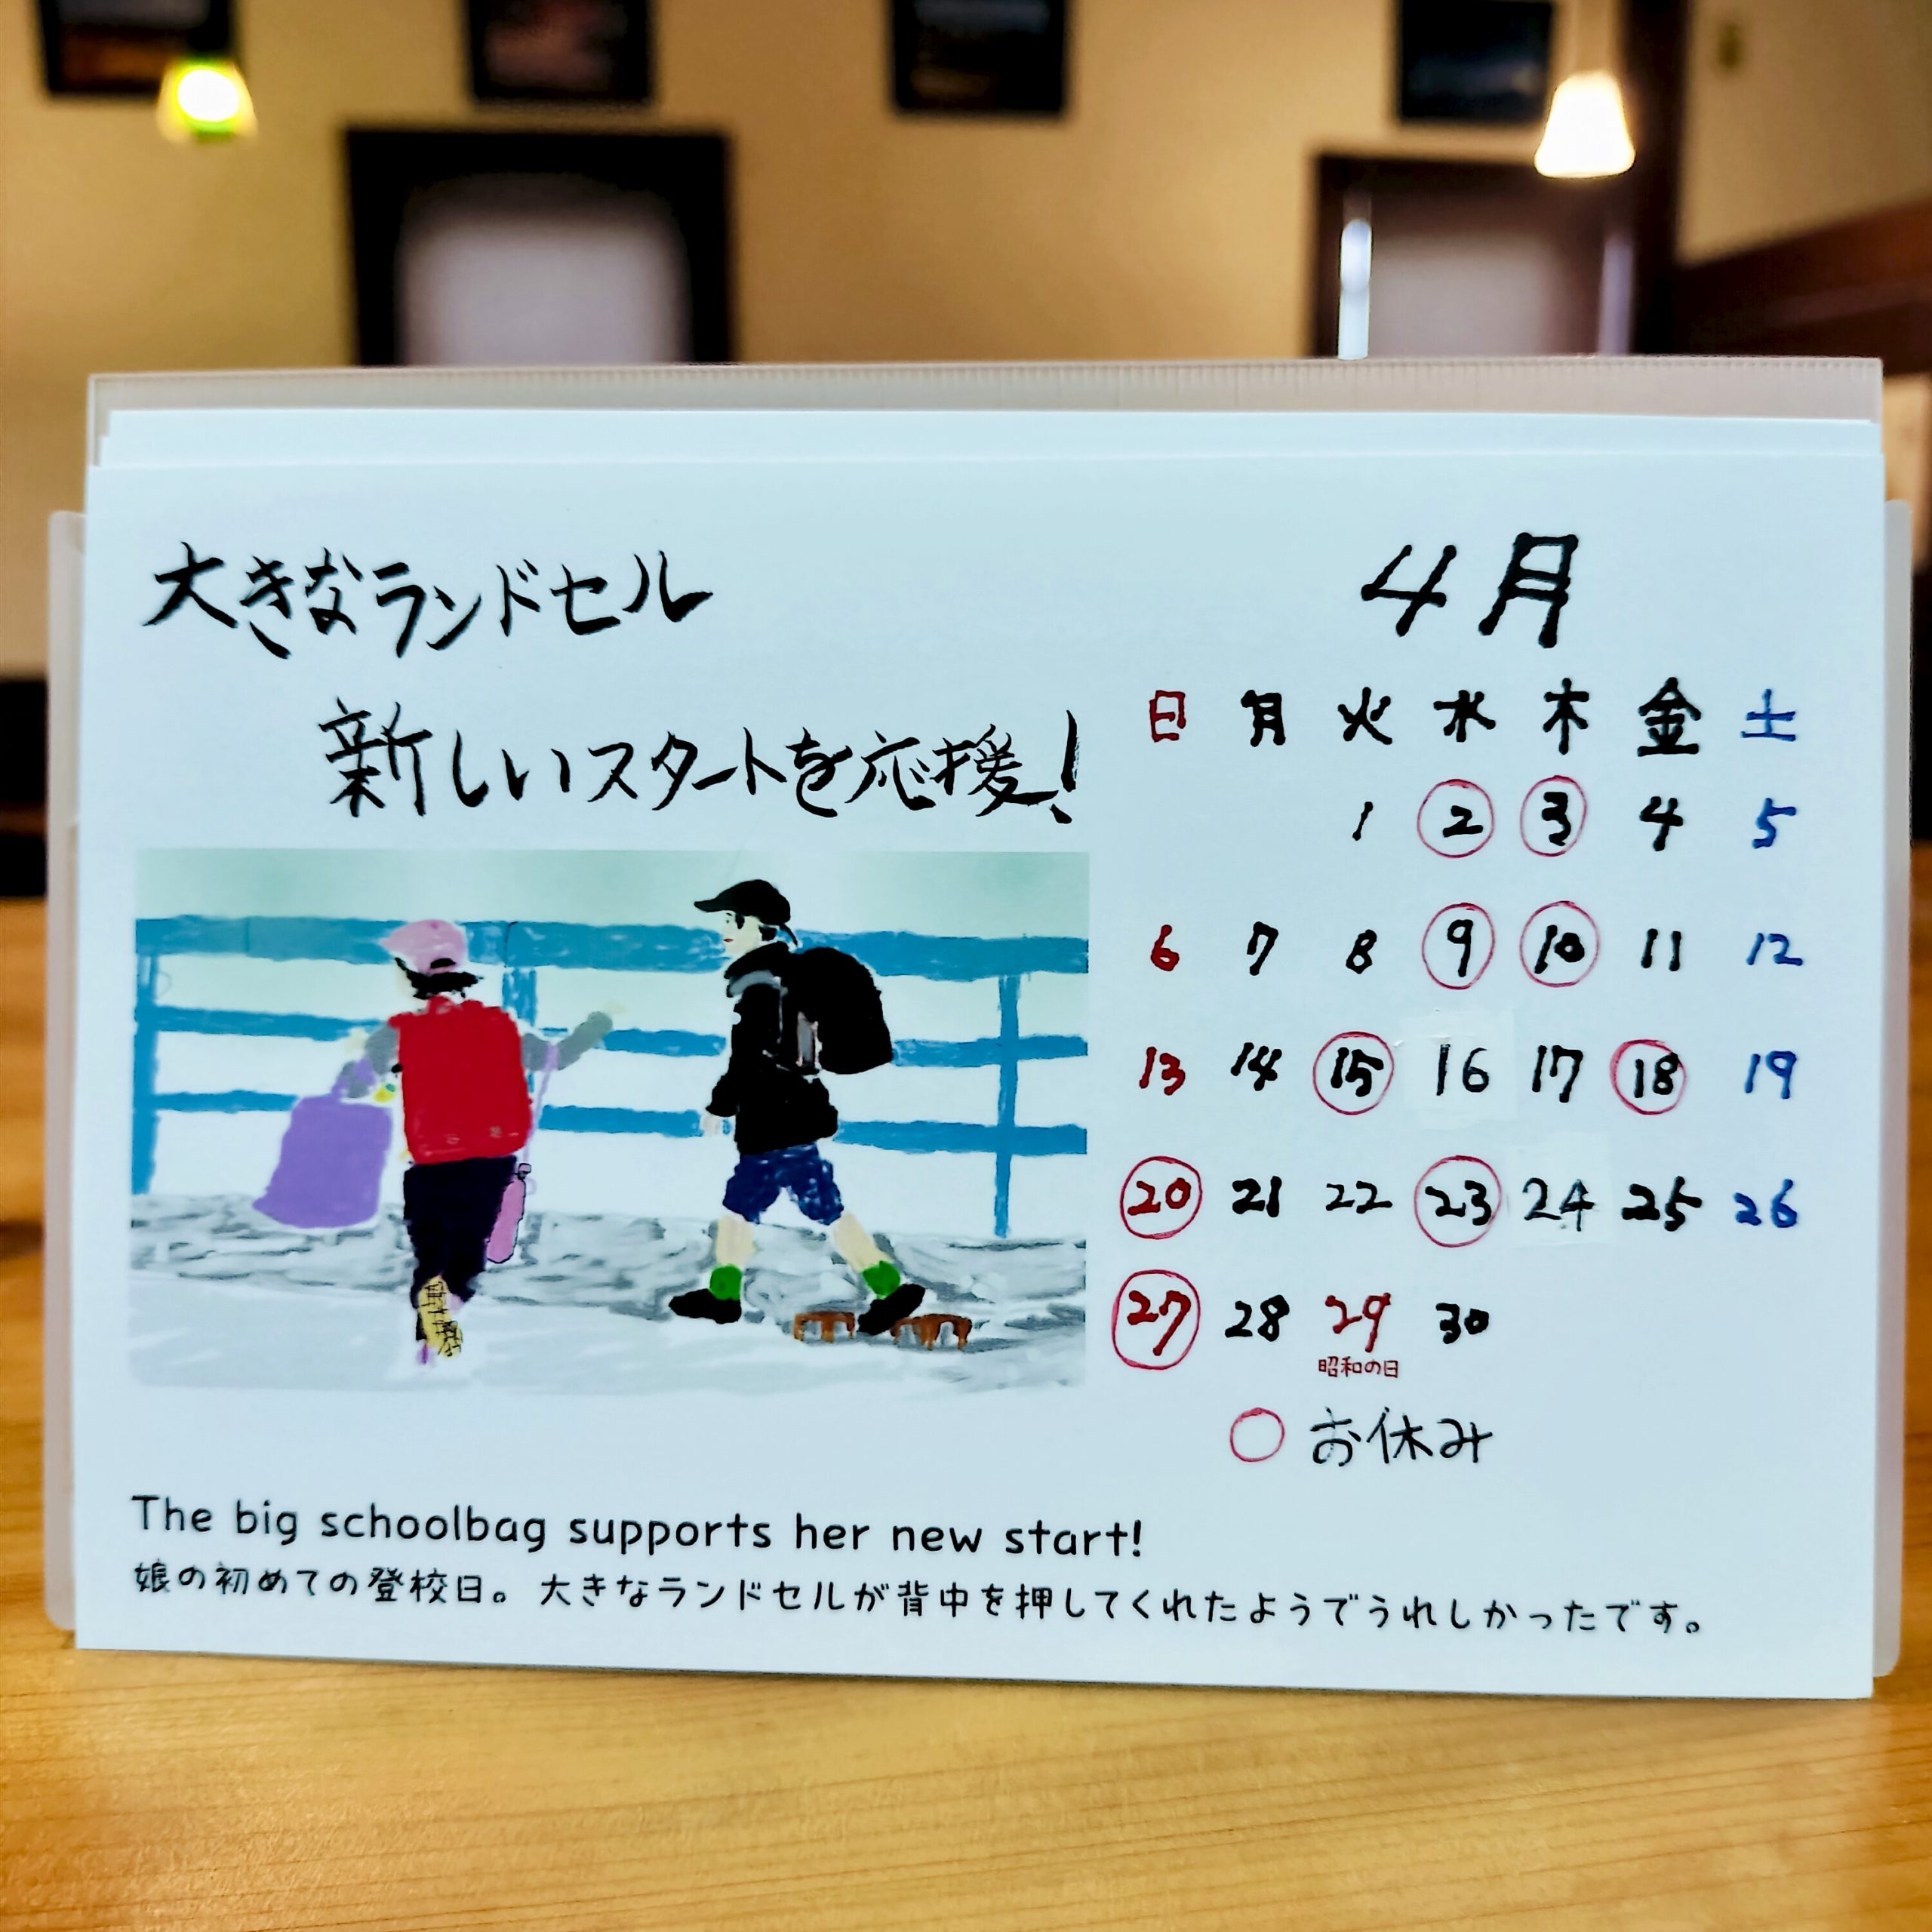 大きなランドセル
新しいスタートを応援!
4月
日 月 火 水 木 金 土
1 2 3 4 5
6 7 8 9 10 11 12
13 14 15 16 17 18 19
20 21 22 23 24 25 26
27 28 29 30
昭和の日
○ お休み
The big schoolbag supports her new start!
娘の初めての登校日。大きなランドセルが背中を押してくれたようでうれしかったです。